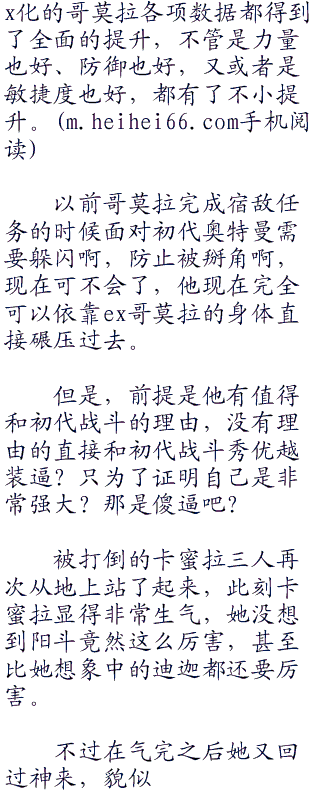 x化的哥莫拉各项数据都得到
了全面的提升，不管是力量
也好、防御也好，又或者是
敏捷度也好，都有了不小提
升。(m.heihei66.com手机阅
读)
以前哥莫拉完成宿敌任
务的时候面对初代奥特曼需
要躲闪啊，防止被掰角啊，
现在可不会了，他现在完全
可以依靠ex哥莫拉的身体直
接碾压过去。
但是，前提是他有值得
和初代战斗的理由，没有理
由的直接和初代战斗秀优越
装逼？只为了证明自己是非
常强大？那是傻逼吧？
被打倒的卡蜜拉三人再
次从地上站了起来，此刻卡
蜜拉显得非常生气，她没想
到阳斗竟然这么厉害，甚至
比她想象中的迪迦都还要厉
害。
不过在气完之后她又回
过神来，貌似